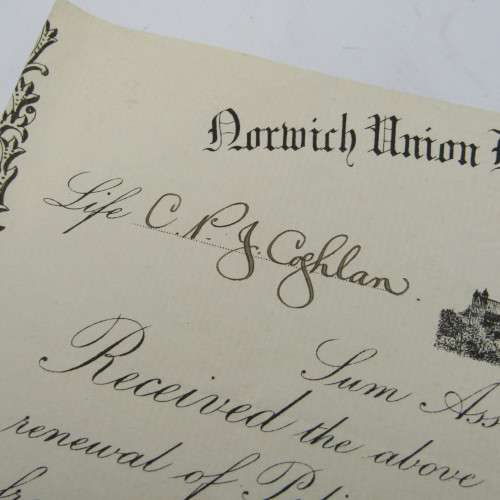 Norwich Union
Life C. P. J. Coghlan.
Sum Ass
Received the above
renewal of